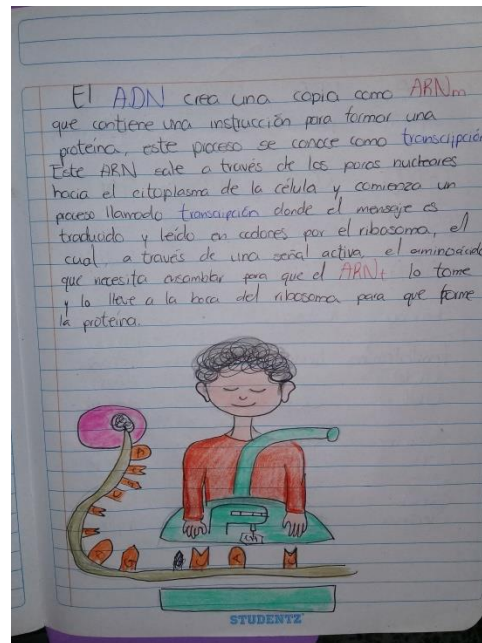 El ADN crea una copia como ARNm
que contiene una instrucción para formar una
proteína, este proceso se conoce como transcripción
Este ARN sale a través de los poros nucleares
hacia el citoplasma de la célula y comienza un
proceso llamado transcripción donde el mensaje es
traducido y leído en codones por el ribosoma, el
cual, a través de una señal activa, el aminoácido
que necesita ensamblar para que el ARNt lo tome
y lo lleve a la boca del ribosoma para que forme
la proteína.
STUDENTZ